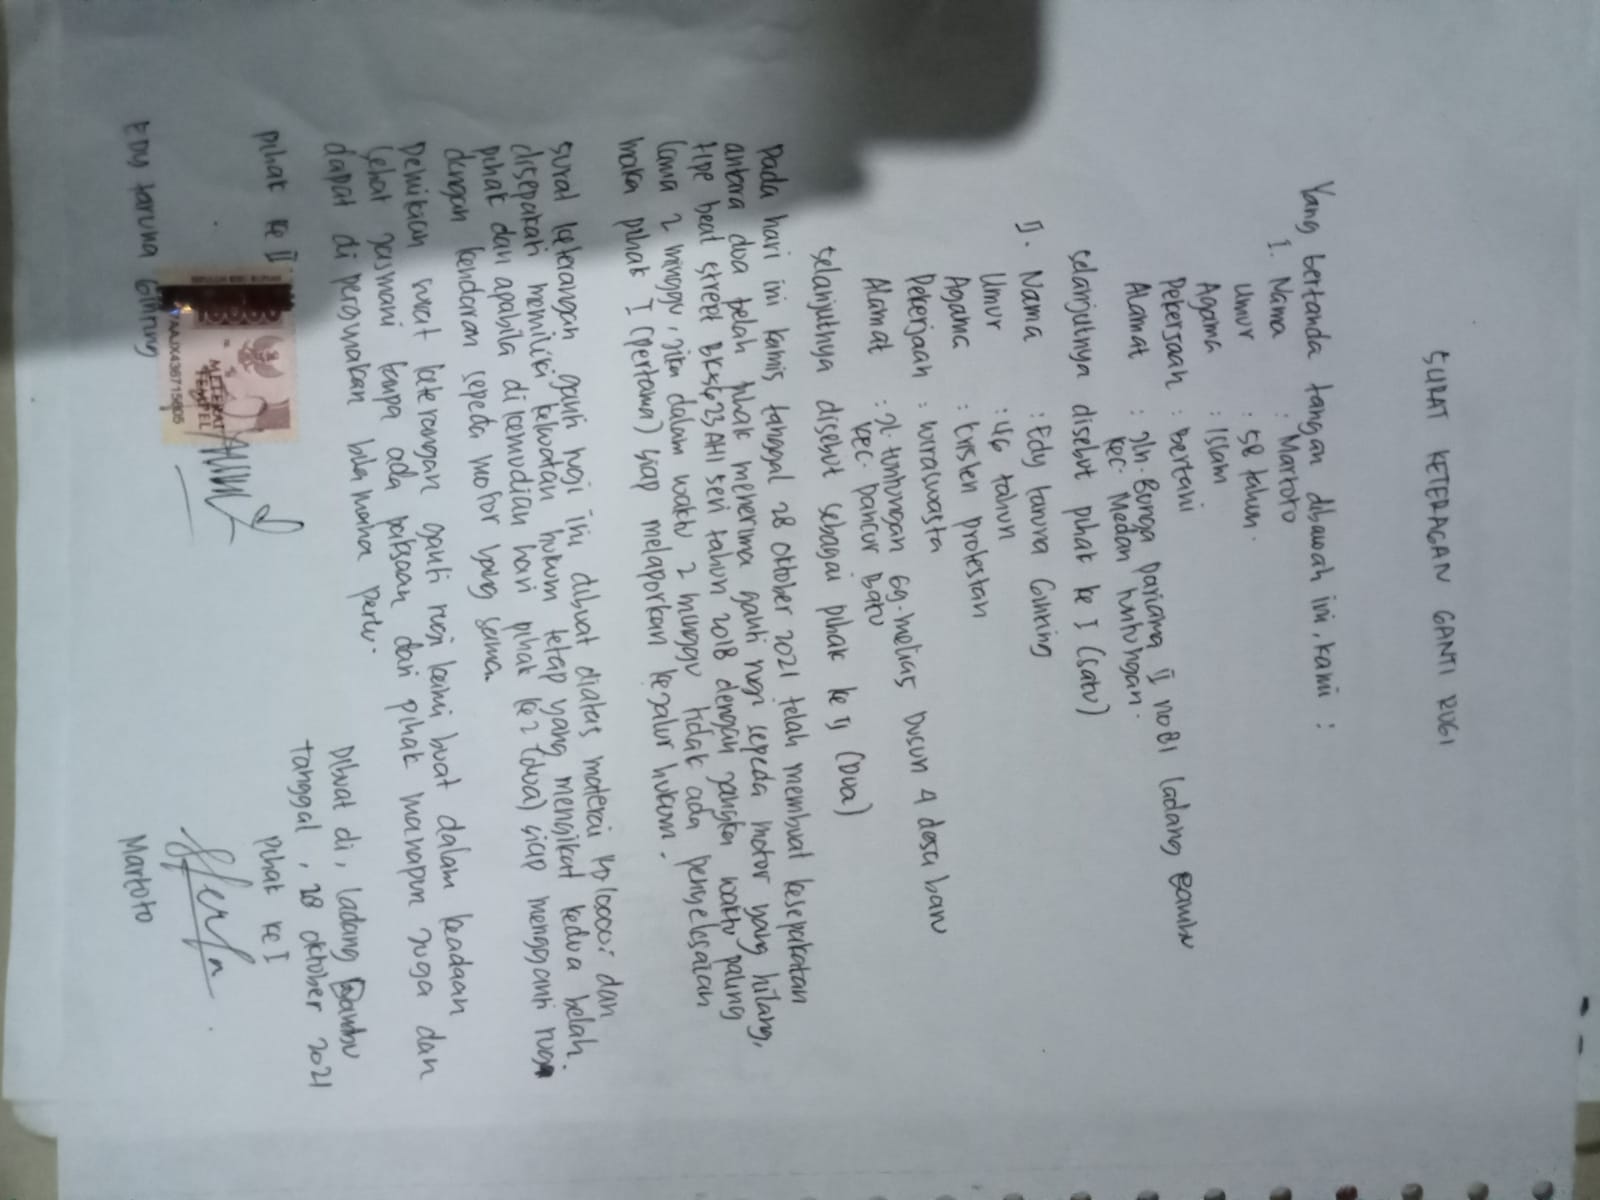 SURAT KETERAGAN GANTI RUGI
Yang bertanda tangan dibawah ini, kami :
I. Nama : Martoto
Umur : 58 tahun.
Agama : Islam
Pekerjaan : Bertani
Alamat : Jln. Bunga Pariama II no 81 Ladang Bambu
Kec. Medan tuntungan.
selanjutnya disebut pihak ke I (satu)
II. Nama : Edy taruna Ginting
Umur : 46 tahun
Agama : kristen protestan
Pekerjaan : wiraswasta
Alamat : Jl. tuntungan Gg. melias Dusun 4 desa baru
kec. pancur Batu
selanjutnya disebut sebagai pihak ke II (Dua)
Pada hari ini kamis tanggal 28 oktober 2021 telah membuat kesepakatan
antara dua belah pihak menerima ganti rugi sepeda motor yang hilang,
tipe beat street BK 5623 AHI seri tahun 2018 dengan jangka waktu paling
lama 2 minggu, jika dalam waktu 2 minggu tidak ada penyelesaian
maka pihak I (pertama) siap melaporkan kejalur hukum.
surat keterangan ganti rugi ini dibuat diatas materai 10.000 dan
disepakati memiliki kekuatan hukum tetap yang mengikat kedua belah
pihak dan apabila dikemudian hari pihak ke 2 (dua) siap mengganti rugi
dengan kendaran sepeda motor yang sama.
Demikian surat keterangan ganti rugi kami buat dalam keadaan
sehat jasmani tanpa ada paksaan dari pihak manapun juga dan
dapat di pergunakan bila mana perlu.
Dibuat di, Ladang Bambu
tanggal, 28 oktober 2021
Pihak ke II
Pihak ke I
METERAI
TEMPEL
AAJX436715805
EDY taruna Ginting
Martoto